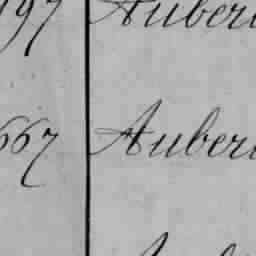 197 Auber
667 Auber